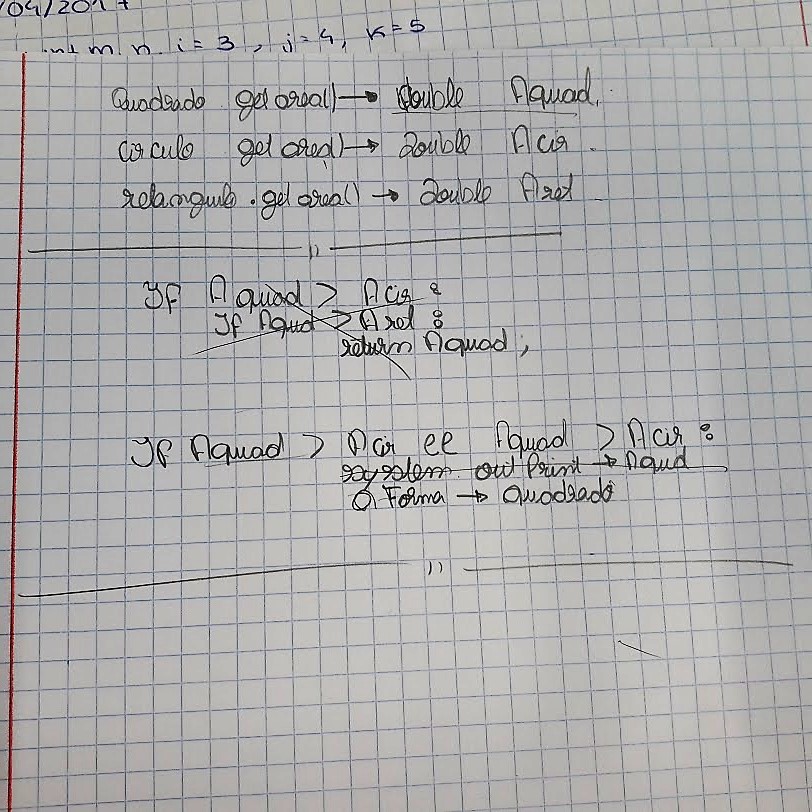 04/2017
int m, n, i = 3, j = 4, k = 5
Quadrado getarea() → double Aquad.
Circulo getarea() → double Acir.
retangulo.getarea() → double Aret
If Aquad > Acir:
If Aquad > Aret:
return Aquad;
If Aquad > Acir ee Aquad > Acir:
sysystem.out Print → Aquad
O Forma → Quadrado